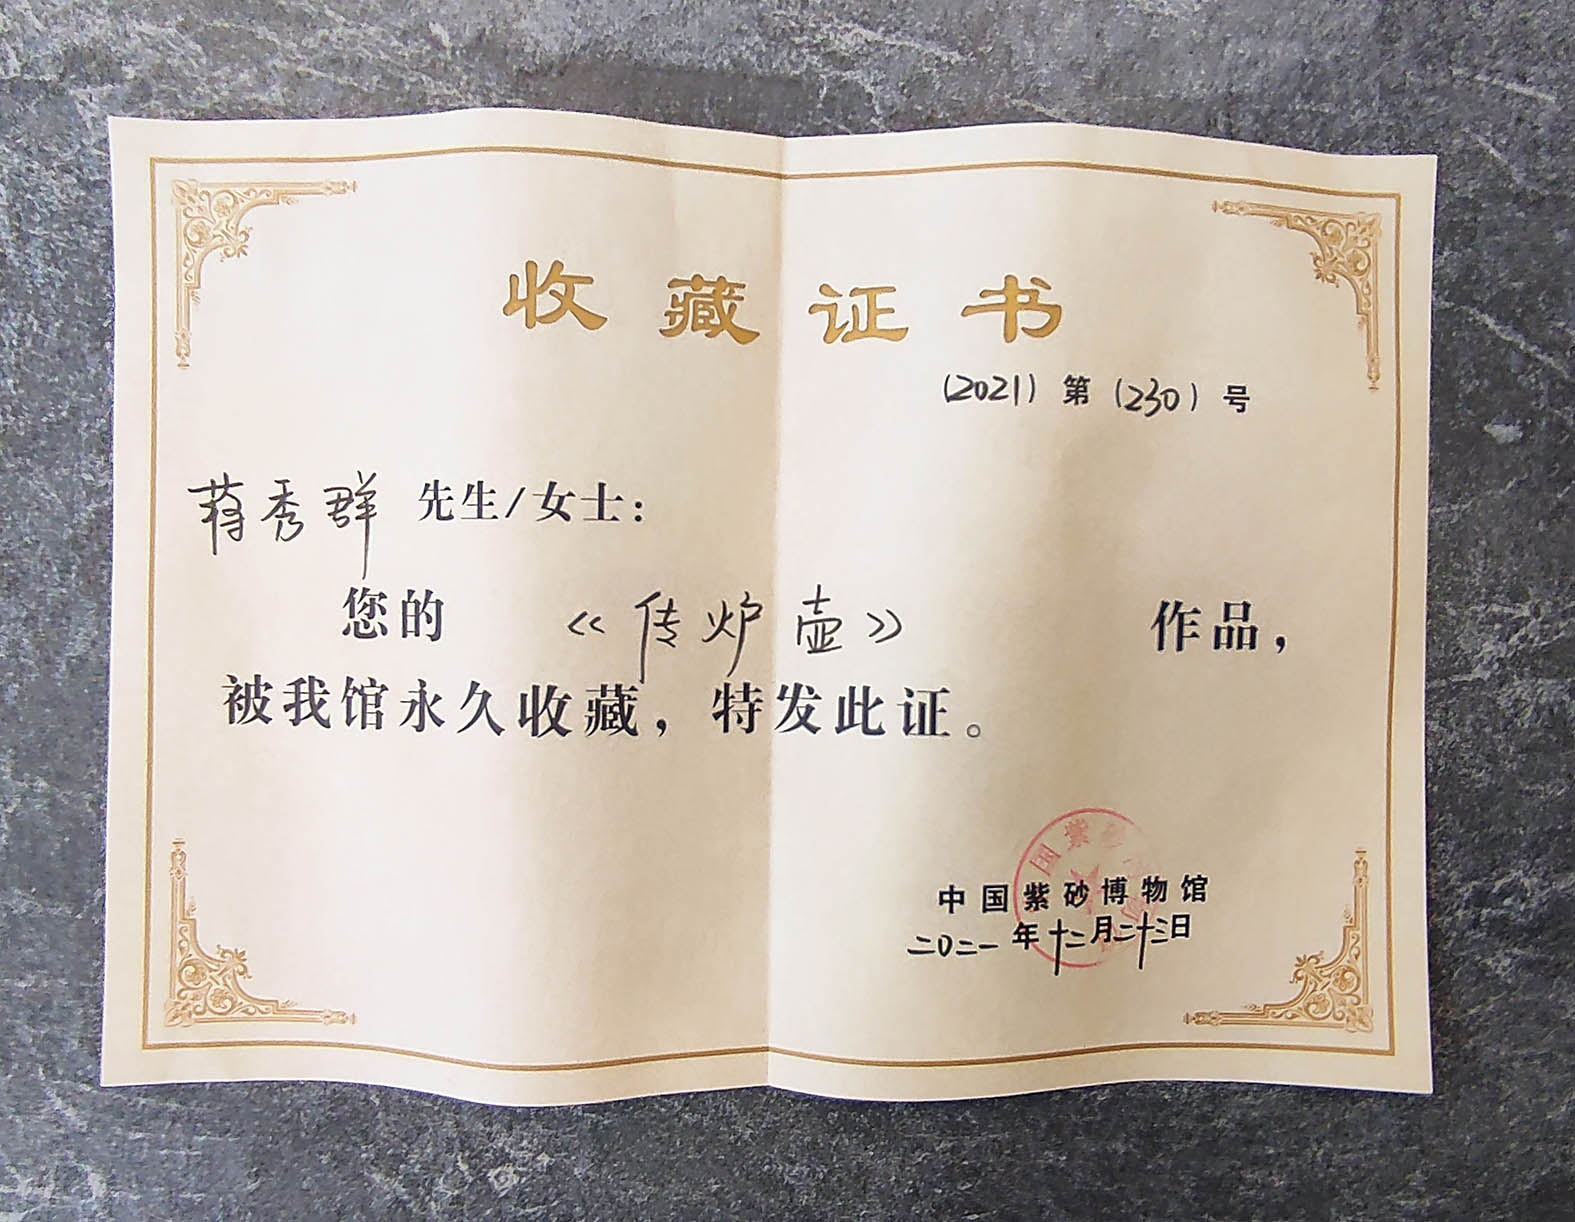 收藏证书
(2021) 第 (230) 号
蒋秀群 先生/女士：
您的 《传炉壶》 作品，
被我馆永久收藏，特发此证。
中国紫砂博物馆
二〇二一年十二月二十三日
国紫砂